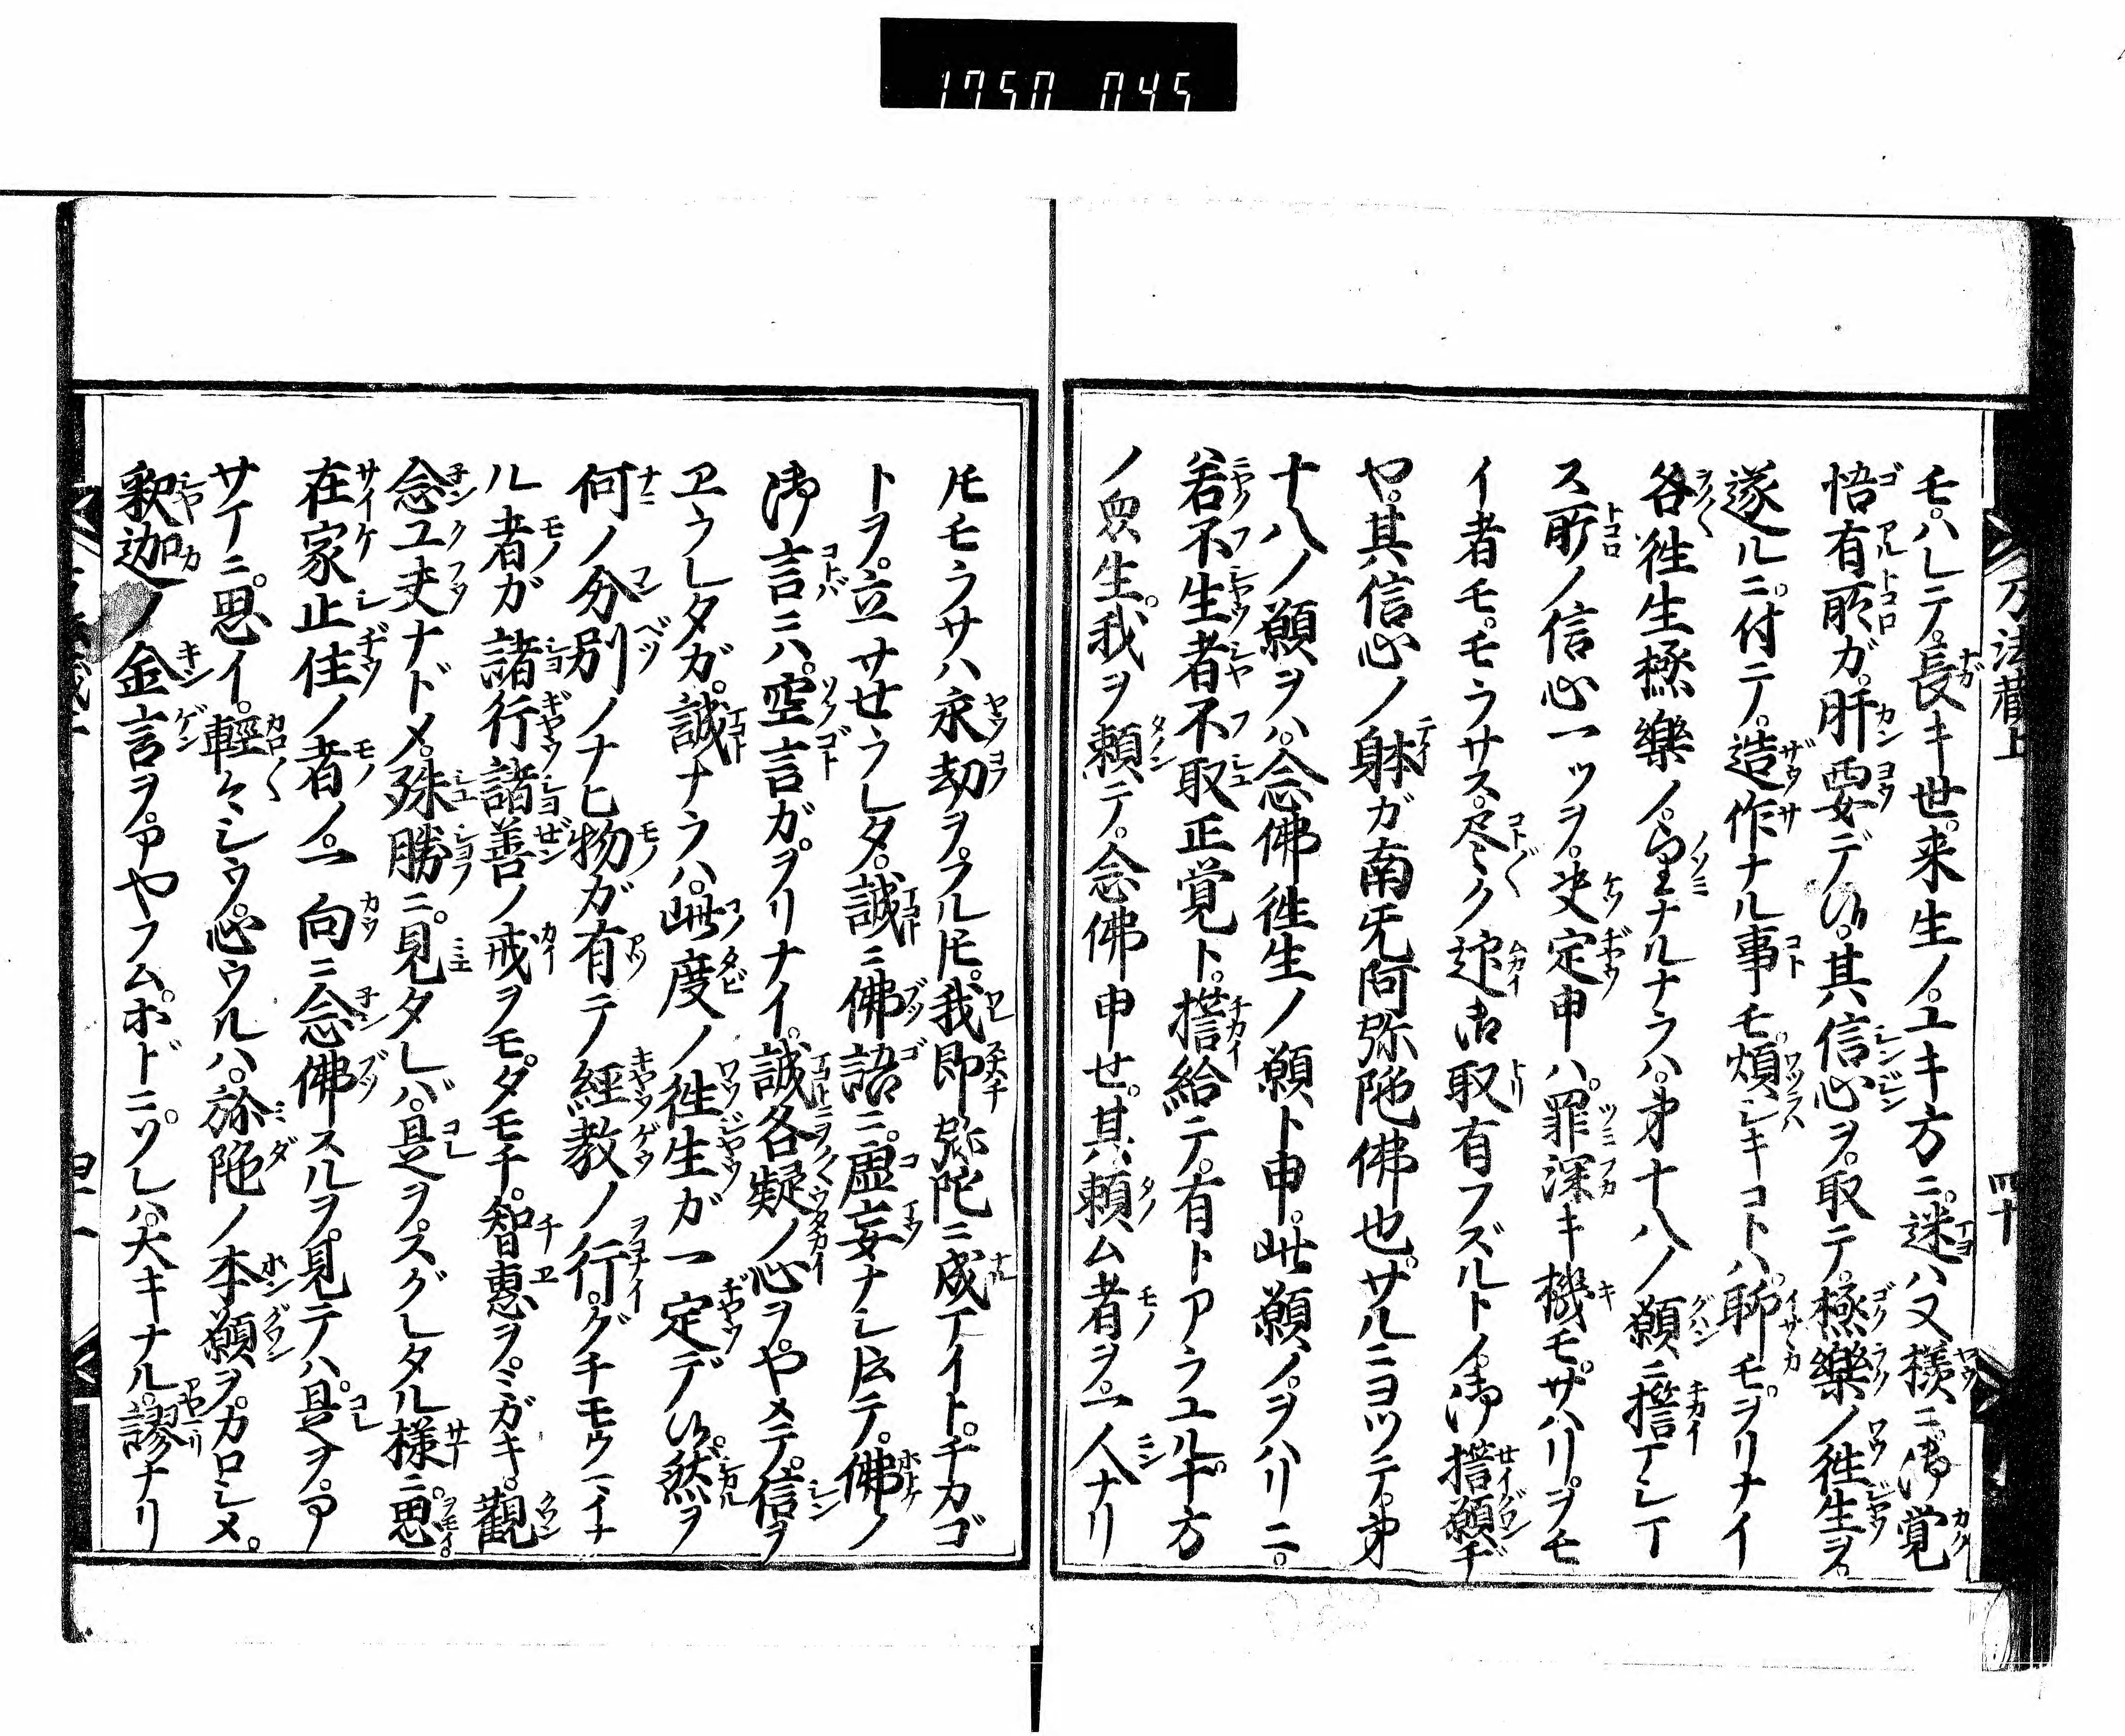 1750 045
万法藏上
四十
モ。ハレテ。長キ世。来生ノ。ユキ方ニ。迷ハヌ様ニ。御覚
悟有所ガ。肝要デ候。其信心ヲ。取テ。極樂ノ往生ヲ。
遂ルニ。付テ。造作ナル事モ。煩シキコトハ。聊モ。ヲリナイ
各往生極樂ノ。望ナルナラハ。第十八ノ願ニ誓マシマ
ス所ノ信心一ツヲ。决定申ハ。罪深キ機モ。サハリ。ヲモ
イ者モ。モラサス。尽ク迎御取有フズルトノ。御誓願ヂ
ヤ。其信心ノ躰ガ南无阿弥陀佛也。サルニヨツテ。第
十八ノ願ヲハ。念佛往生ノ願ト申。此願ノ。ヲハリニ。
若不生者不取正覚ト。誓給テ。有トアラユル十方
ノ衆生。我ヲ頼テ。念佛申せ。其頼ム者ヲ。一人ナリ
モラサハ永劫ヲ。フル。我即弥陀ニ成マイト。チカゴ
トヲ。立サせラレタ。誠ニ佛語ニ。虚妄ナシ。佛ノ
御言ニハ。空言ガ。ヲリナイ。誠各疑ノ心ヲ。ヤメテ。信ヲ
ヱラレタガ。誠ナラハ。此度ノ往生ガ一定デ候。然ヲ
何ノ分別ノナヒ物ガ有テ経教ノ行。グチモウマイナ
ル者ガ諸行諸善ノ戒ヲモ。タモチ。智惠ヲ。ミガキ。觀
念工夫ナドメ。殊勝ニ。見タレバ。是ヲ。スグレタル様ニ思
在家止住ノ者ノ。一向ニ念佛スルヲ。見テハ。是ヲ。ア
サマニ。思イ。輕々シウ。心ウルハ。弥陀ノ本願ヲ。カロシメ。
釈迦ノ金言ヲ。アヤフム。ホドニ。ソレハ。大キナル。謬ナリ